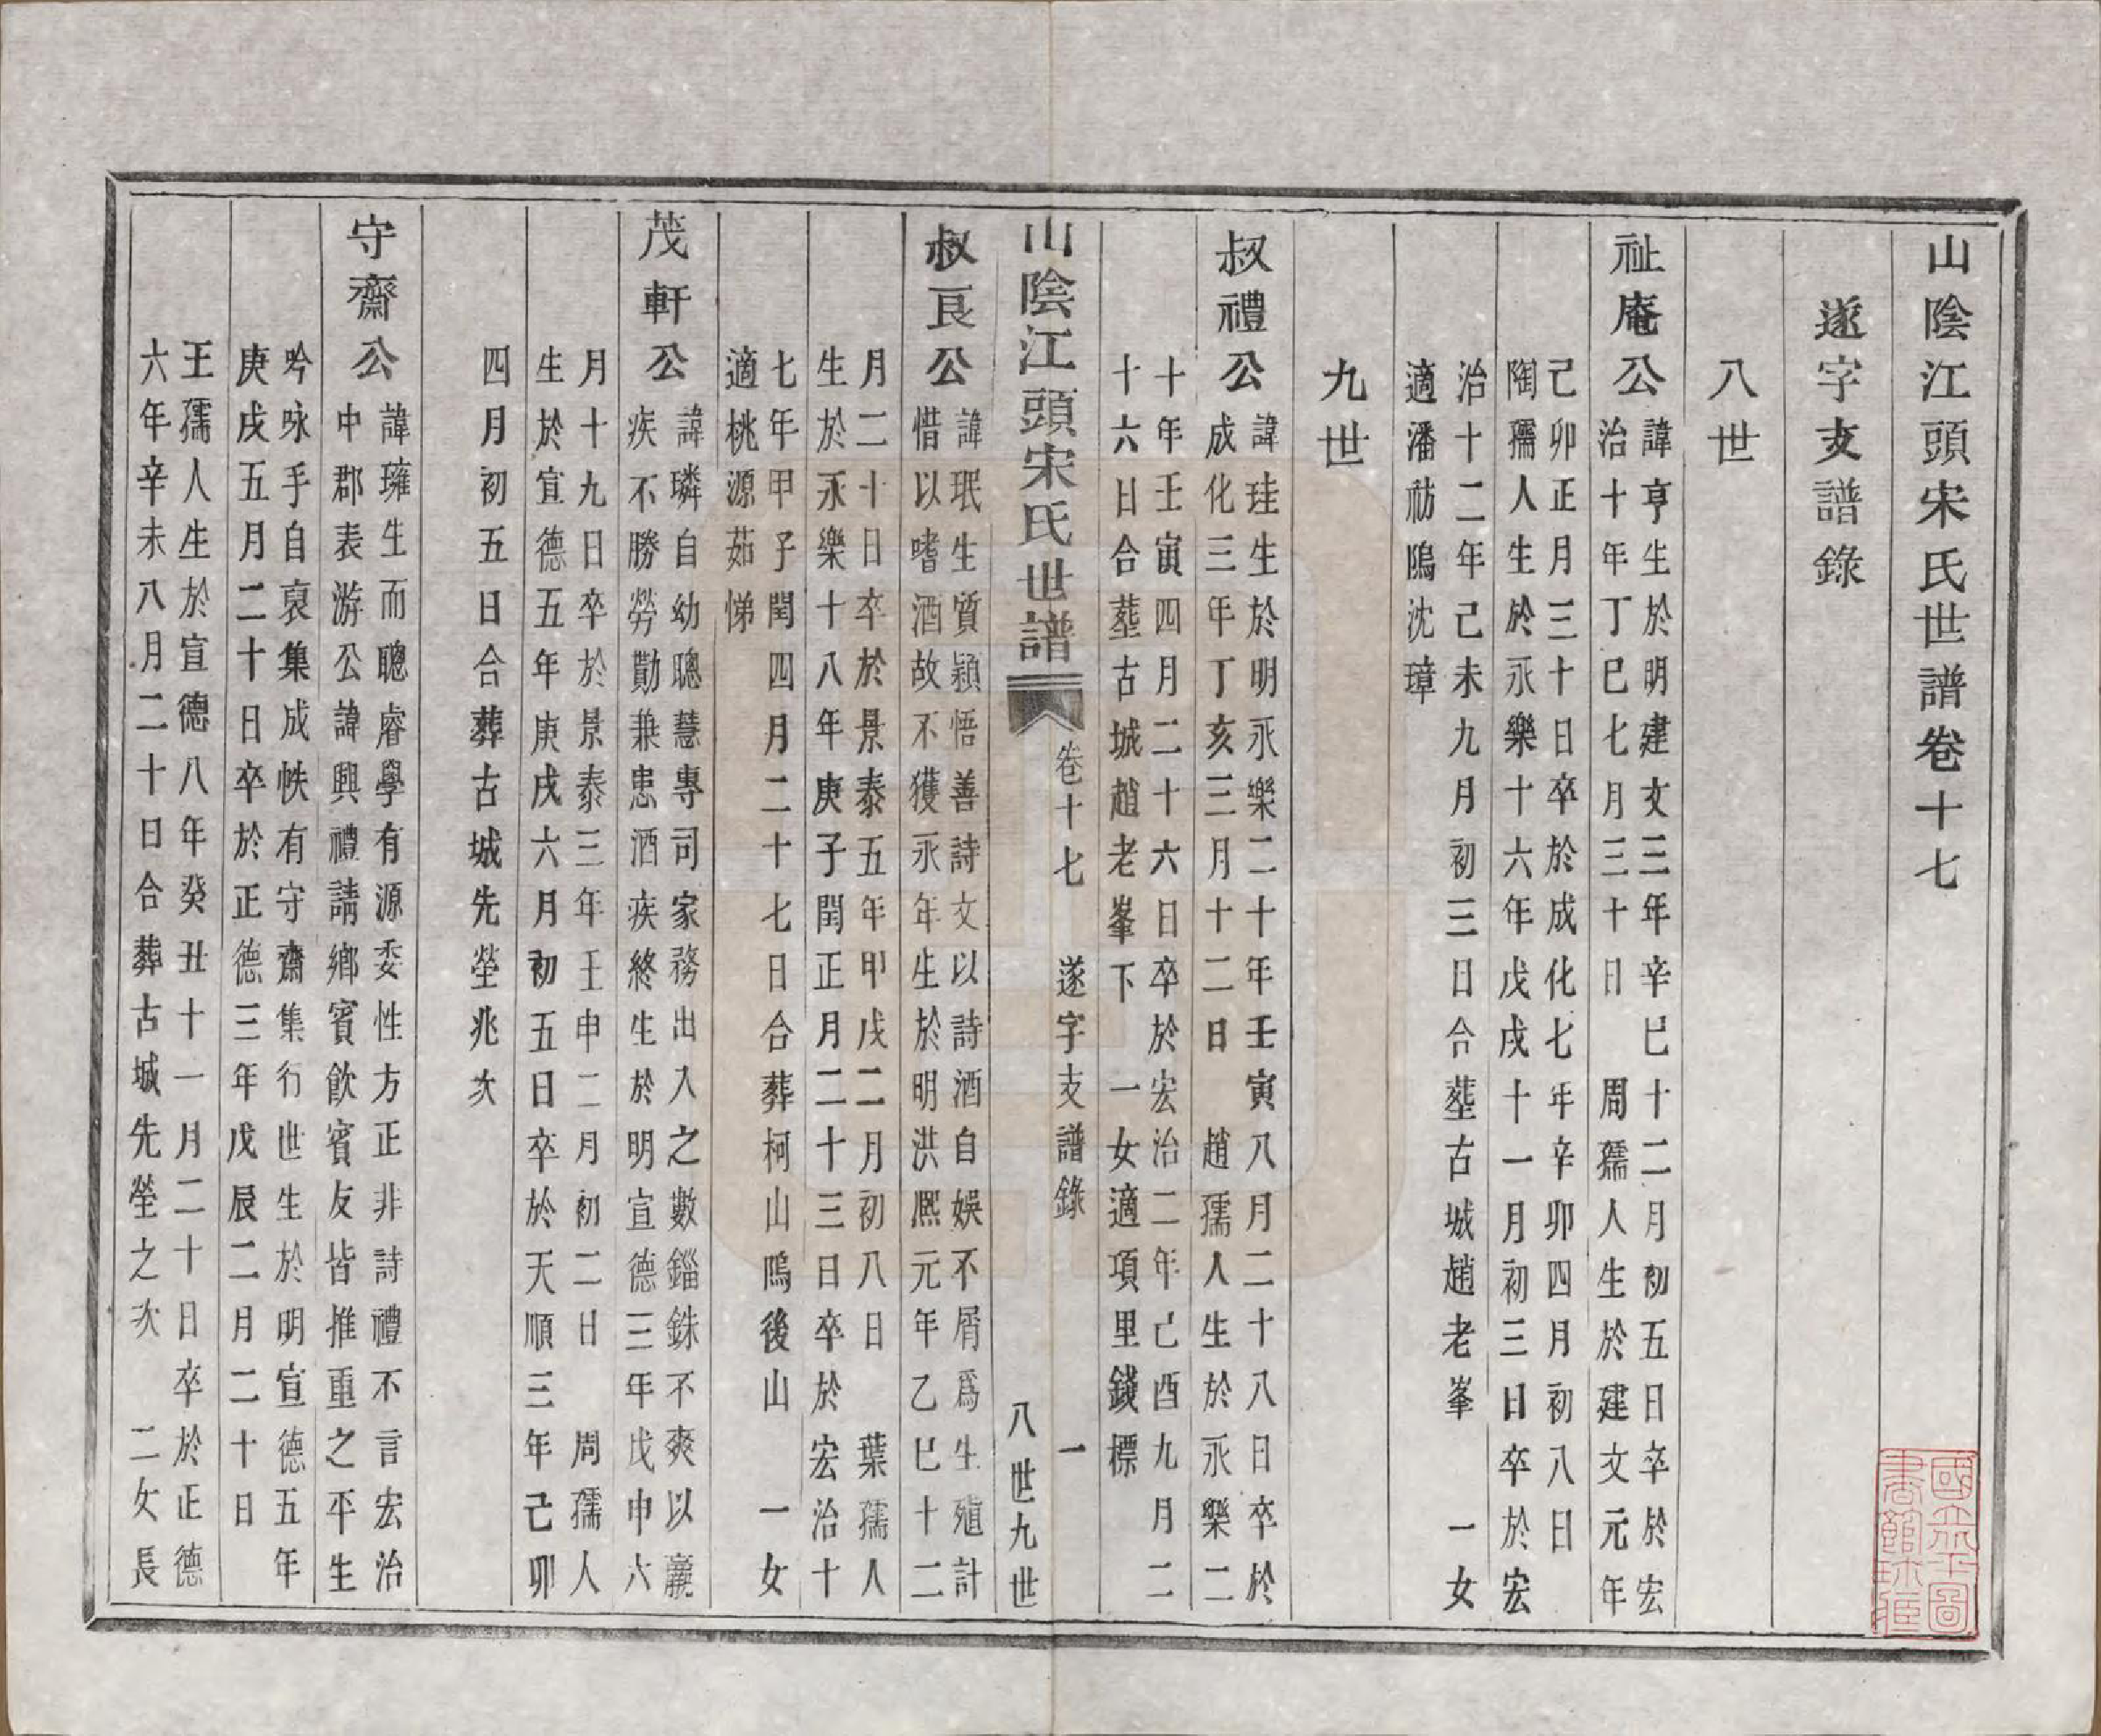 山陰江頭宋氏世譜卷十七
遂字支譜錄
八世
祉庵公
諱亨生於明建文三年辛巳十二月初五日卒於宏
治十年丁巳七月三十日 周孺人生於建文元年
己卯正月三十日卒於成化七年辛卯四月初八日
陶孺人生於永樂十六年戊戌十一月初三日卒於宏
治十二年己未九月初三日合塟古城趙老峯 一女
適潘舫隖沈璋
九世
叔禮公
諱珪生於明永樂二十年壬寅八月二十八日卒於
成化三年丁亥三月十二日 趙孺人生於永樂二
十年壬寅四月二十六日卒於宏治二年己酉九月二
十六日合塟古城趙老峯下 一女適項里錢標
山陰江頭宋氏世譜 卷十七 遂字支譜錄 一
八世九世
叔良公
諱珉生質穎悟善詩文以詩酒自娛不屑爲生殖計
惜以嗜酒故不獲永年生於明洪熙元年乙巳十二
月二十日卒於景泰五年甲戌二月初八日 葉孺人
生於永樂十八年庚子閏正月二十三日卒於宏治十
七年甲子閏四月二十七日合葬柯山隖後山 一女
適桃源茹悌
茂軒公
諱璘自幼聰慧專司家務出入之數錙銖不爽以羸
疾不勝勞勩兼患酒疾終生於明宣德三年戊申六
月十九日卒於景泰三年壬申二月初二日 周孺人
生於宣德五年庚戌六月初五日卒於天順三年己卯
四月初五日合葬古城先塋兆次
守齋公
諱㻿生而聰睿學有源委性方正非詩禮不言宏治
中郡表游公諱興禮請鄉賓飲賓友皆推重之平生
吟咏手自裒集成帙有守齋集行世生於明宣德五年
庚戌五月二十日卒於正德三年戊辰二月二十日
王孺人生於宣德八年癸丑十一月二十日卒於正德
六年辛未八月二十日合葬古城先塋之次 二女長
國立北平圖
書館珍藏